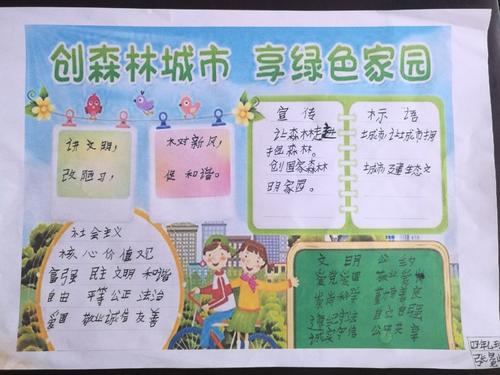 创森林城市 享绿色家园
讲文明,
改陋习,
树新风,
促和谐。
宣传
让森林走进
拥抱森林。
创国家森林
明家园。
标语
城市,让城市拥
城市 建生态文
社会主义
核心价值观
富强 民主 文明 和谐
自由 平等 公正 法治
爱国 敬业 诚信 友善
文明公约
爱党爱国
自立自强
诚实守信
四年